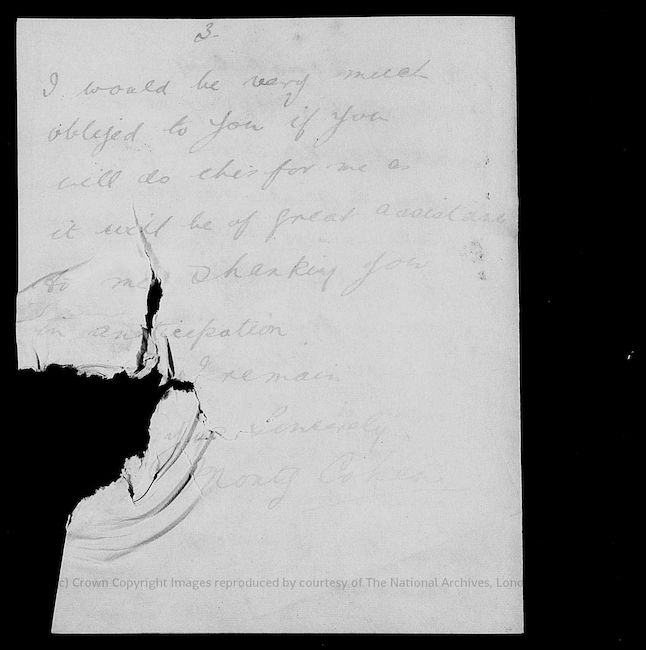 3.
I would be very much
obliged to you if you
will do this for me as
it will be of great assistance
to me Thanking you
in anticipation
I remain
Yours Sincerely
Monty Cohen
(c) Crown Copyright Images reproduced by courtesy of The National Archives, Lond